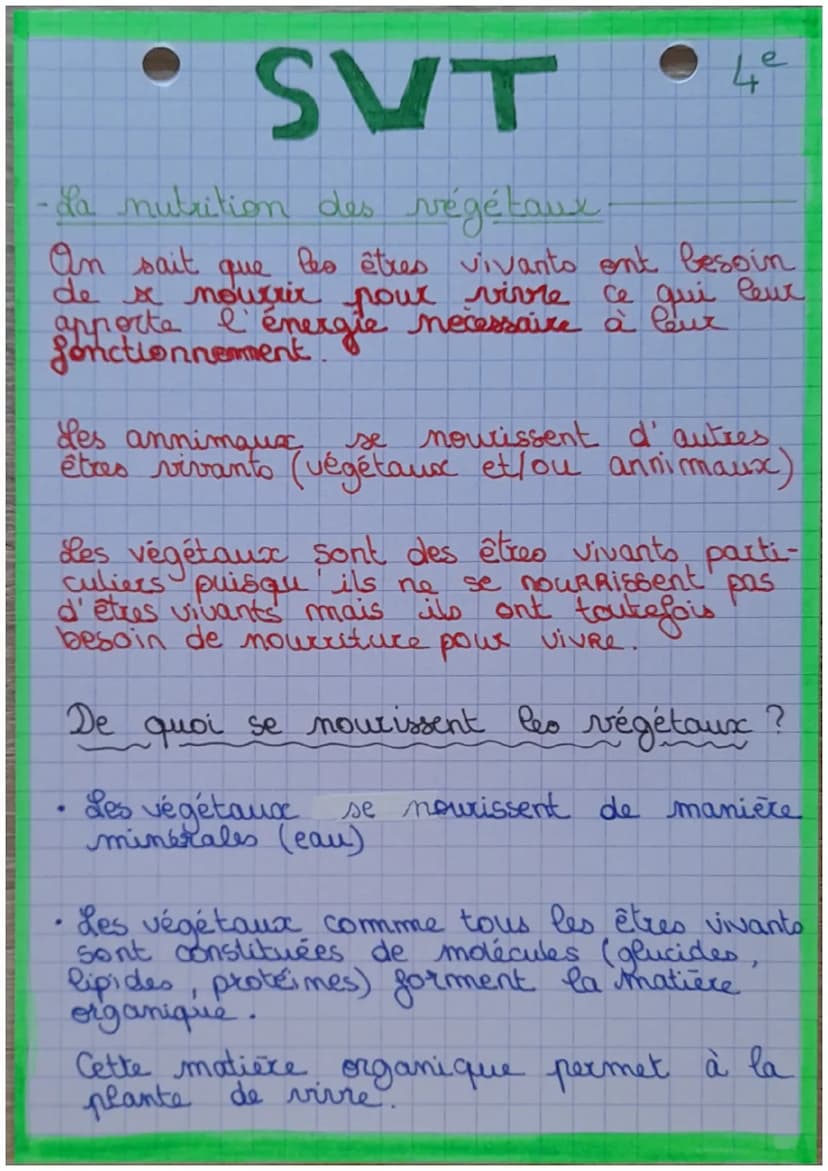 SVT
4e
- La nutrition des végétaux
On sait que les êtres vivants ont besoin
de se nourrir pour vivre ce qui leur
apporte l'énergie nécessaire à leur
fonctionnement.
Les annimaux se nourissent d'autres
êtres vivants (végétaux et/ou annimaux)
Les végétaux sont des êtres vivants parti-
culiers puisqu'ils ne se nourrissent pas
d'êtres vivants mais ils ont toutefois
besoin de nourriture pour vivre.
De quoi se nourissent les végétaux ?
• Les végétaux se nourissent de manière
minérales (eau)
• Les végétaux comme tous les êtres vivants
sont constituées de molécules (glucides,
lipides, protéines) forment la matière
organique.
Cette matière organique permet à la
plante de vivre.